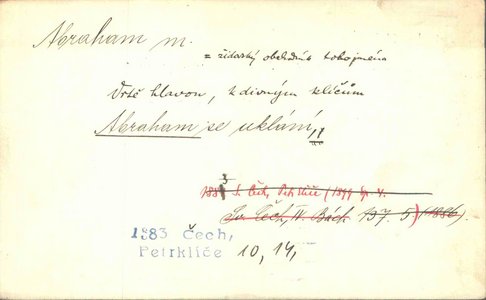 Abraham m.
= židovský obchodník tohojména
Vrtě hlavou, k divným klíčům
Abraham se uklání,
1883 S. Čech, Petrklíče (1899 sp. 4.
Sv. Čech, IV. Bách. 197. 5) (1886).
1883 Čech,
Petrklíče 10, 14,